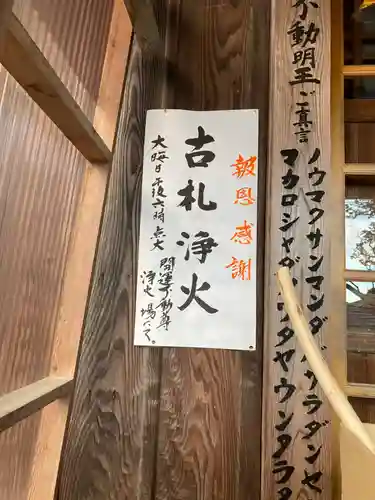 不動明王ご真言
ノウマクサンマンダバサラダンセ
マカロシャダソワタヤウンタラ
報恩感謝
古札浄火
大晦日午后六時点火
開運不動尊
浄火場にて